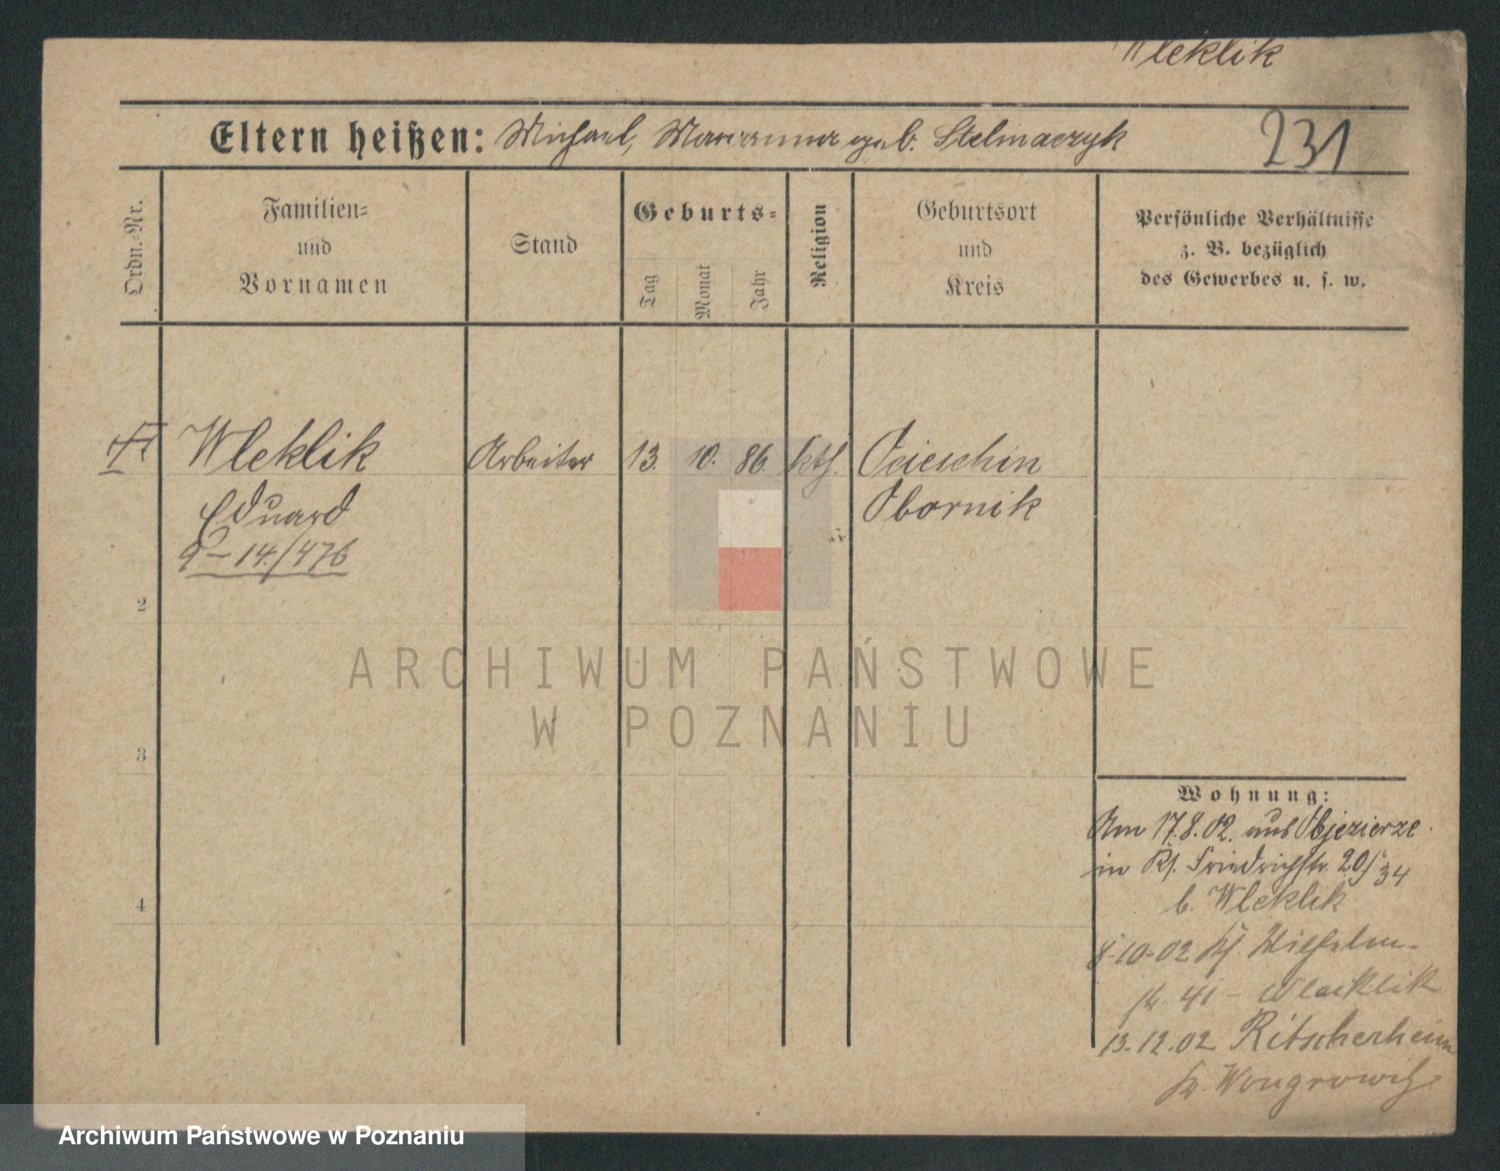 Wleklik
Eltern heißen: Michael, Marianna geb. Stelmaczyk 231
Ordn.-Nr.
Familien-
und
Vornamen
Stand
Geburts-
Tag
Monat
Jahr
Religion
Geburtsort
und
Kreis
Persönliche Verhältnisse
z. B. bezüglich
des Gewerbes u. s. w.
Wleklik Arbeiter 13. 10. 86. kth. Ocieschin
Eduard Obornik
14./476
2
3
4
ARCHIWUM PAŃSTWOWE
W POZNANIU
Wohnung:
Am 17.8.02. aus Objezierze
in Pos. Friedrichstr. 20/34
b. Wleklik
8-10-02 Wilhelm-
str. 41 - Wlecklik
13.12.02 Ritscherheim
Kr. Wongrowitz
Archiwum Państwowe w Poznaniu